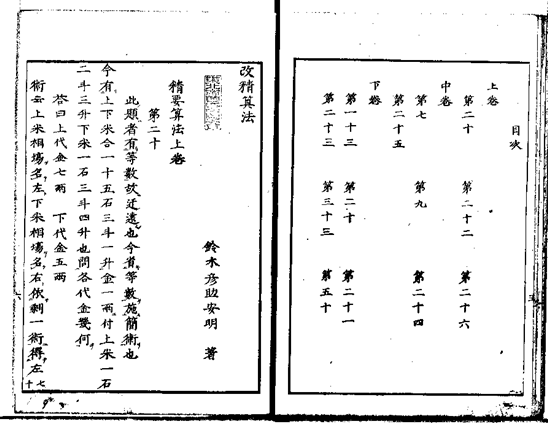 目次
上卷
第二十　第二十二　第二十六
中卷
第七　第九　第二十四
第二十五
下卷
第一十三　第二十　第二十一
第二十三　第三十三　第五十
改精算法
鈴木彦助安明　著
精要算法上卷
第二十
此題者有等數故迂遠也今省等數施簡術也
今有上下米合一十五石三斗一升金一兩付上米一石
二斗三升下米一石三斗四升也問各代金幾何
答曰上代金七兩　下代金五兩
術云上米相場名左下米相場名右依剩一術得左
七十